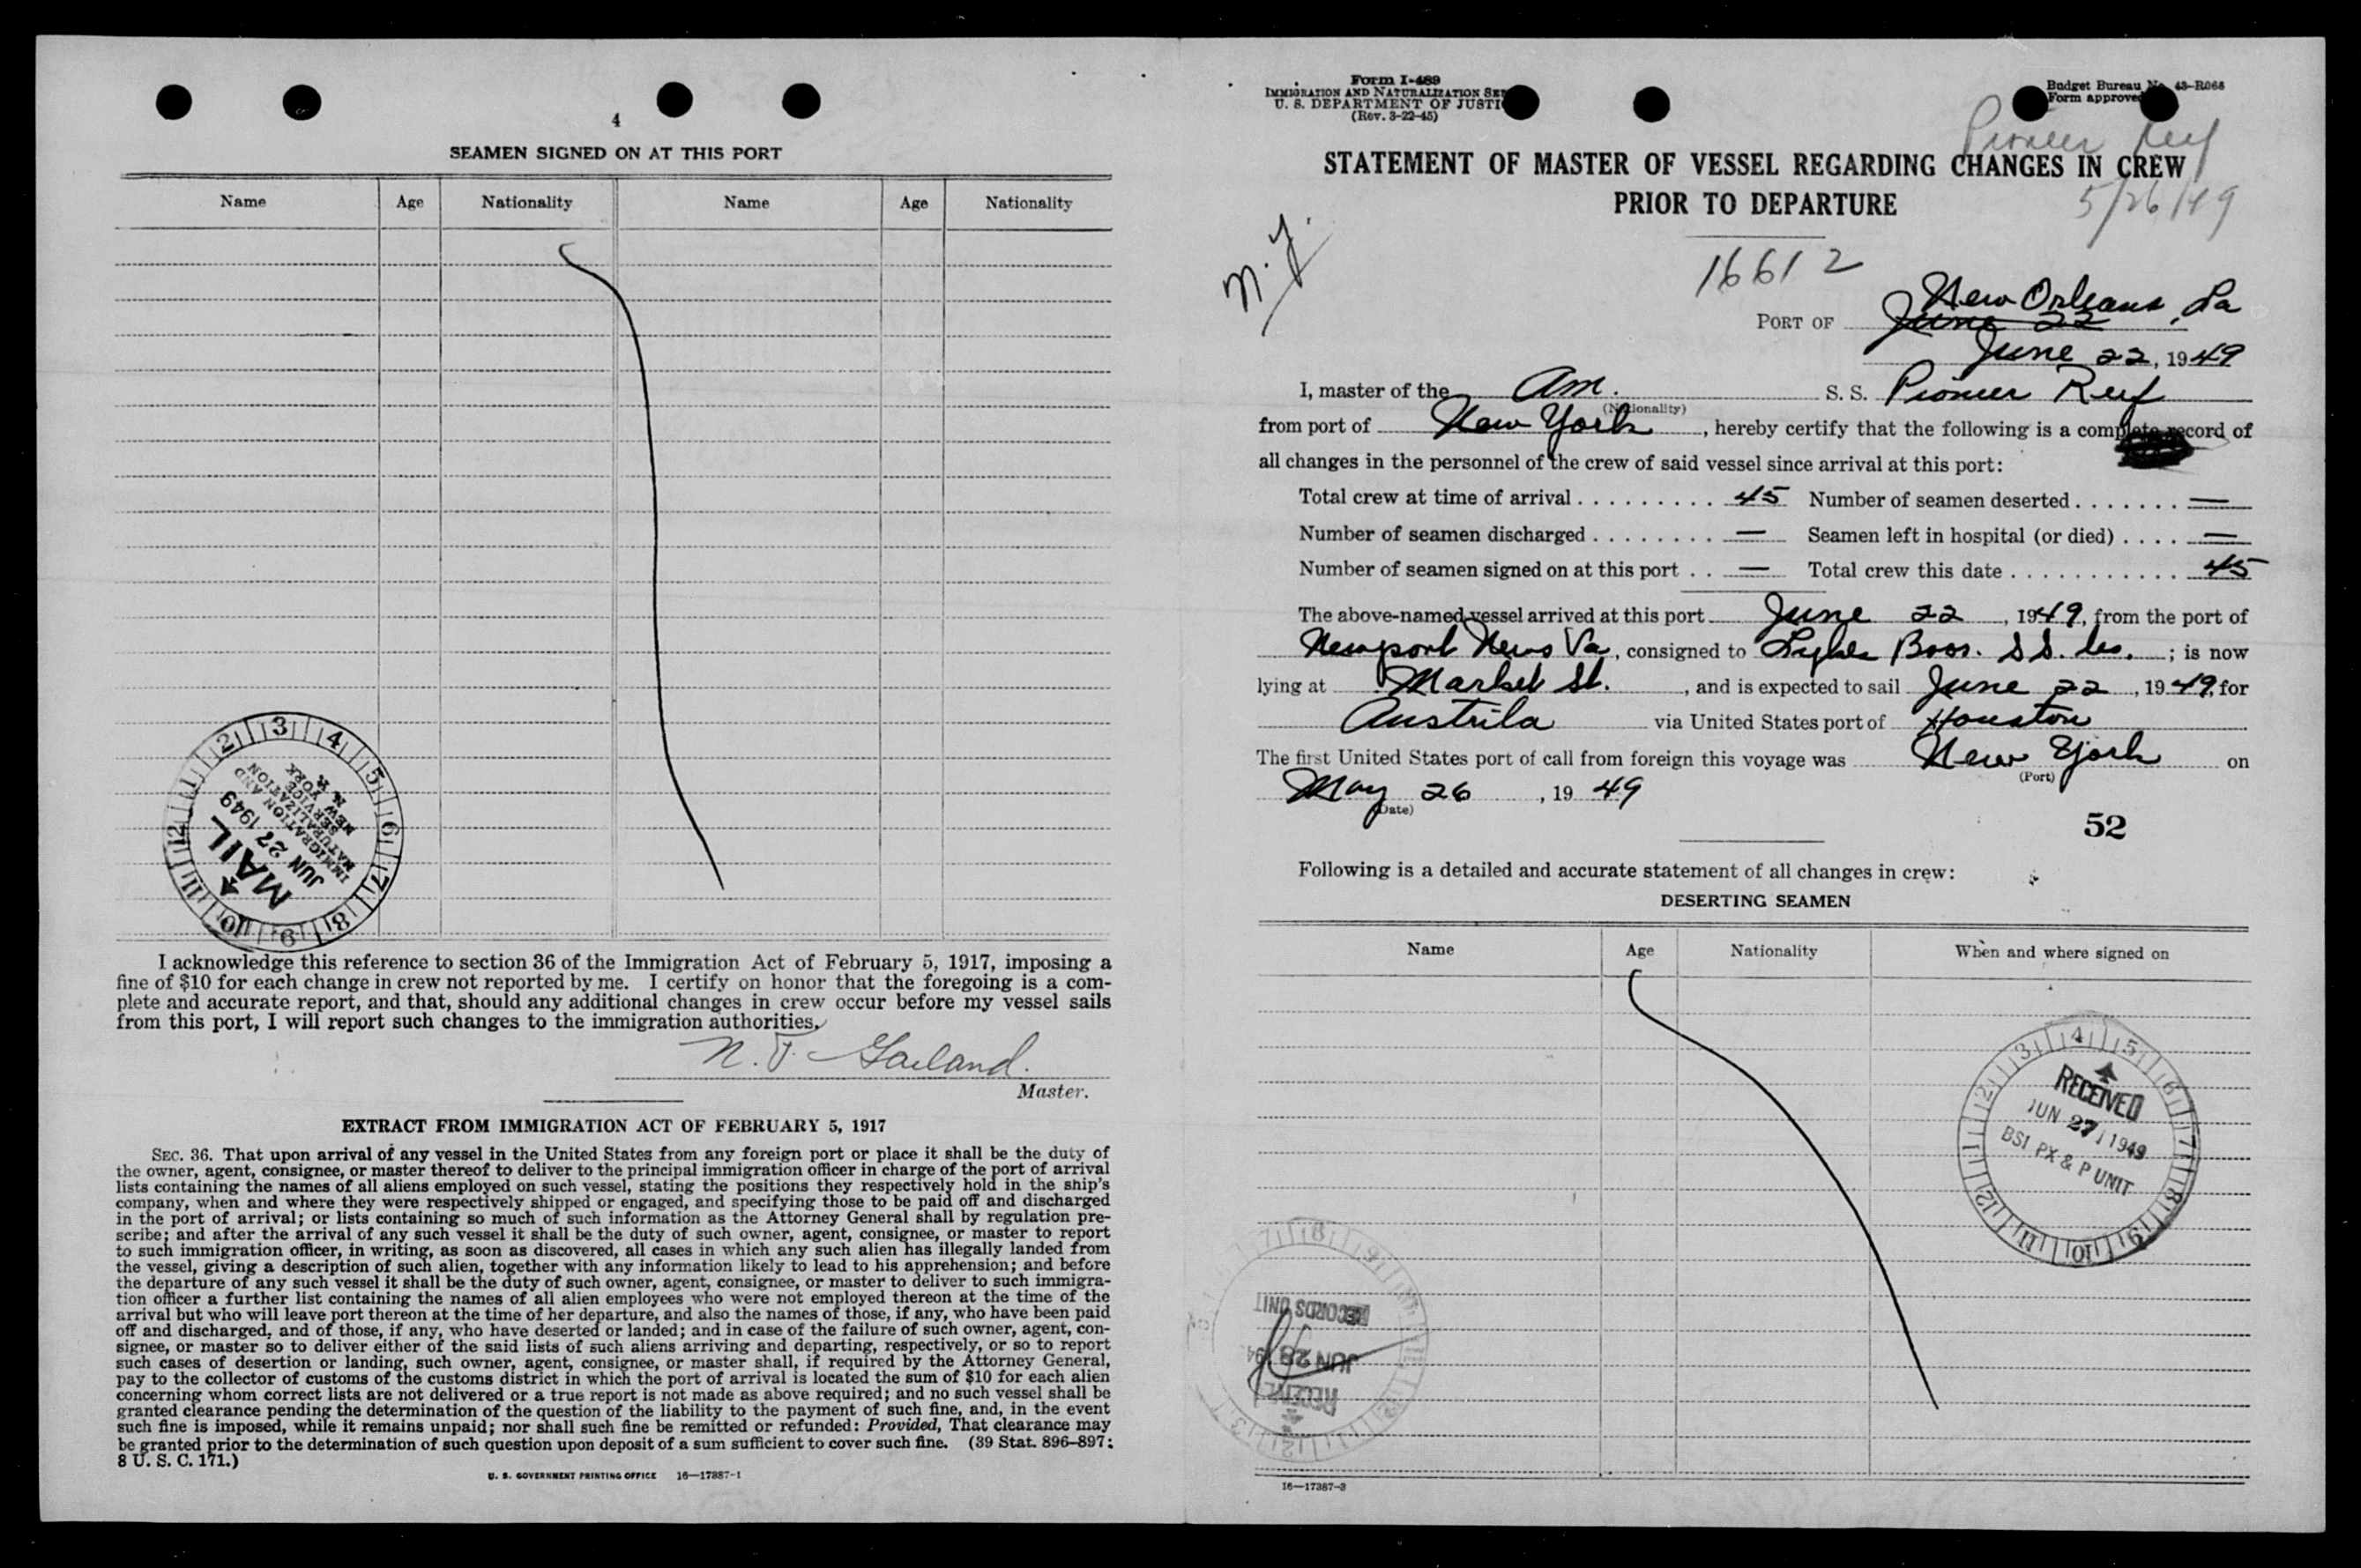 4
SEAMEN SIGNED ON AT THIS PORT
Name Age Nationality Name Age Nationality
MAIL
JUN 27 1949
IMMIGRATION AND
NATURALIZATION
SERVICE
NEW YORK
N. Y.
I acknowledge this reference to section 36 of the Immigration Act of February 5, 1917, imposing a
fine of $10 for each change in crew not reported by me. I certify on honor that the foregoing is a com-
plete and accurate report, and that, should any additional changes in crew occur before my vessel sails
from this port, I will report such changes to the immigration authorities.
N. F. Garland.
Master.
EXTRACT FROM IMMIGRATION ACT OF FEBRUARY 5, 1917
SEC. 36. That upon arrival of any vessel in the United States from any foreign port or place it shall be the duty of
the owner, agent, consignee, or master thereof to deliver to the principal immigration officer in charge of the port of arrival
lists containing the names of all aliens employed on such vessel, stating the positions they respectively hold in the ship's
company, when and where they were respectively shipped or engaged, and specifying those to be paid off and discharged
in the port of arrival; or lists containing so much of such information as the Attorney General shall by regulation pre-
scribe; and after the arrival of any such vessel it shall be the duty of such owner, agent, consignee, or master to report
to such immigration officer, in writing, as soon as discovered, all cases in which any such alien has illegally landed from
the vessel, giving a description of such alien, together with any information likely to lead to his apprehension; and before
the departure of any such vessel it shall be the duty of such owner, agent, consignee, or master to deliver to such immigra-
tion officer a further list containing the names of all alien employees who were not employed thereon at the time of the
arrival but who will leave port thereon at the time of her departure, and also the names of those, if any, who have been paid
off and discharged, and of those, if any, who have deserted or landed; and in case of the failure of such owner, agent, con-
signee, or master so to deliver either of the said lists of such aliens arriving and departing, respectively, or so to report
such cases of desertion or landing, such owner, agent, consignee, or master shall, if required by the Attorney General,
pay to the collector of customs of the customs district in which the port of arrival is located the sum of $10 for each alien
concerning whom correct lists are not delivered or a true report is not made as above required; and no such vessel shall be
granted clearance pending the determination of the question of the liability to the payment of such fine, and, in the event
such fine is imposed, while it remains unpaid; nor shall such fine be remitted or refunded: Provided, That clearance may
be granted prior to the determination of such question upon deposit of a sum sufficient to cover such fine. (39 Stat. 896–897;
8 U. S. C. 171.)
U. S. GOVERNMENT PRINTING OFFICE 16—17387-1
Form I-489
IMMIGRATION AND NATURALIZATION
U. S. DEPARTMENT OF
(Rev. 3-22-45)
Budget Bureau No. 43-R066
Form approved
Pioneer Reef
STATEMENT OF MASTER OF VESSEL REGARDING CHANGES IN CREW
PRIOR TO DEPARTURE
5/26/49
N.Y.
16612
New Orleans, La
PORT OF June 22
June 22, 1949
I, master of the Am. S. S. Pioneer Reef
(Nationality)
from port of New York, hereby certify that the following is a complete record of
all changes in the personnel of the crew of said vessel since arrival at this port:
Total crew at time of arrival . . . . . . . . . 45 Number of seamen deserted . . . . . . . —
Number of seamen discharged . . . . . . . . — Seamen left in hospital (or died) . . . . —
Number of seamen signed on at this port . . — Total crew this date . . . . . . . . . . . . 45
The above-named vessel arrived at this port June 22, 1949, from the port of
Newport News Va, consigned to Lykes Bros. S S. Co.; is now
lying at Market St., and is expected to sail June 22, 1949, for
Austrila via United States port of Houston
The first United States port of call from foreign this voyage was New York on
(Port)
May 26, 1949
(Date)
52
Following is a detailed and accurate statement of all changes in crew:
DESERTING SEAMEN
Name Age Nationality When and where signed on
RECEIVED
JUN 27 1949
BSI PX & P UNIT
RECORDS UNIT
JUN 28
RECEIVED
16—17387-3